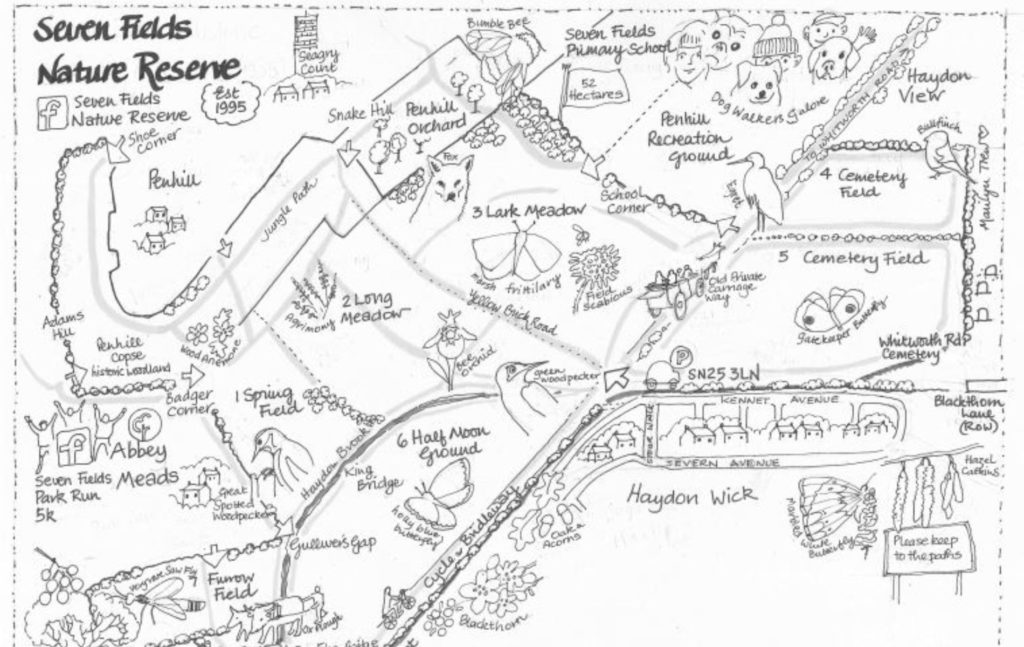 Seven Fields
Nature Reserve
Seven Fields
Nature Reserve
Est
1995
Seagry
Court
Bumble Bee
Seven Fields
Primary School
52
Hectares
Dog Walkers Galore
Haydon
View
TO WHITWORTH ROAD
Shoe
Corner
Snake Hill
Penhill
Orchard
Penhill
Recreation
Ground
Bullfinch
Penhill
Jungle Path
Fox
School
Corner
Egret
4 Cemetery
Field
Marilyn Trew
3 Lark Meadow
marsh
fritillary
Field
Scabious
5 Cemetery Field
Old Private
Carriage
Way
Agrimony
2 Long
Meadow
Yellow Brick Road
gatekeeper Butterfly
Adams
Hill
Penhill
Copse
historic woodland
Wood Anemone
Bee
Orchid
green
woodpecker
P
SN25 3LN
Whitworth Rd
Cemetery
Badger
Corner
1 Spring
Field
KENNET AVENUE
Blackthorn
Lane
(Row)
Abbey
Meads
Seven Fields
Park Run
5k
Great
Spotted
Woodpecker
Haydon Brook
King
Bridge
6 Half Moon
Ground
STOUR WALK
SEVERN AVENUE
Haydon Wick
Hazel
Catkins
holly blue
butterfly
Oak
Acorns
Marbled
White
Butterfly
Please keep
to the paths
Gulliver's Gap
Cycle & Bridleway
Furrow
Field
Blackthorn